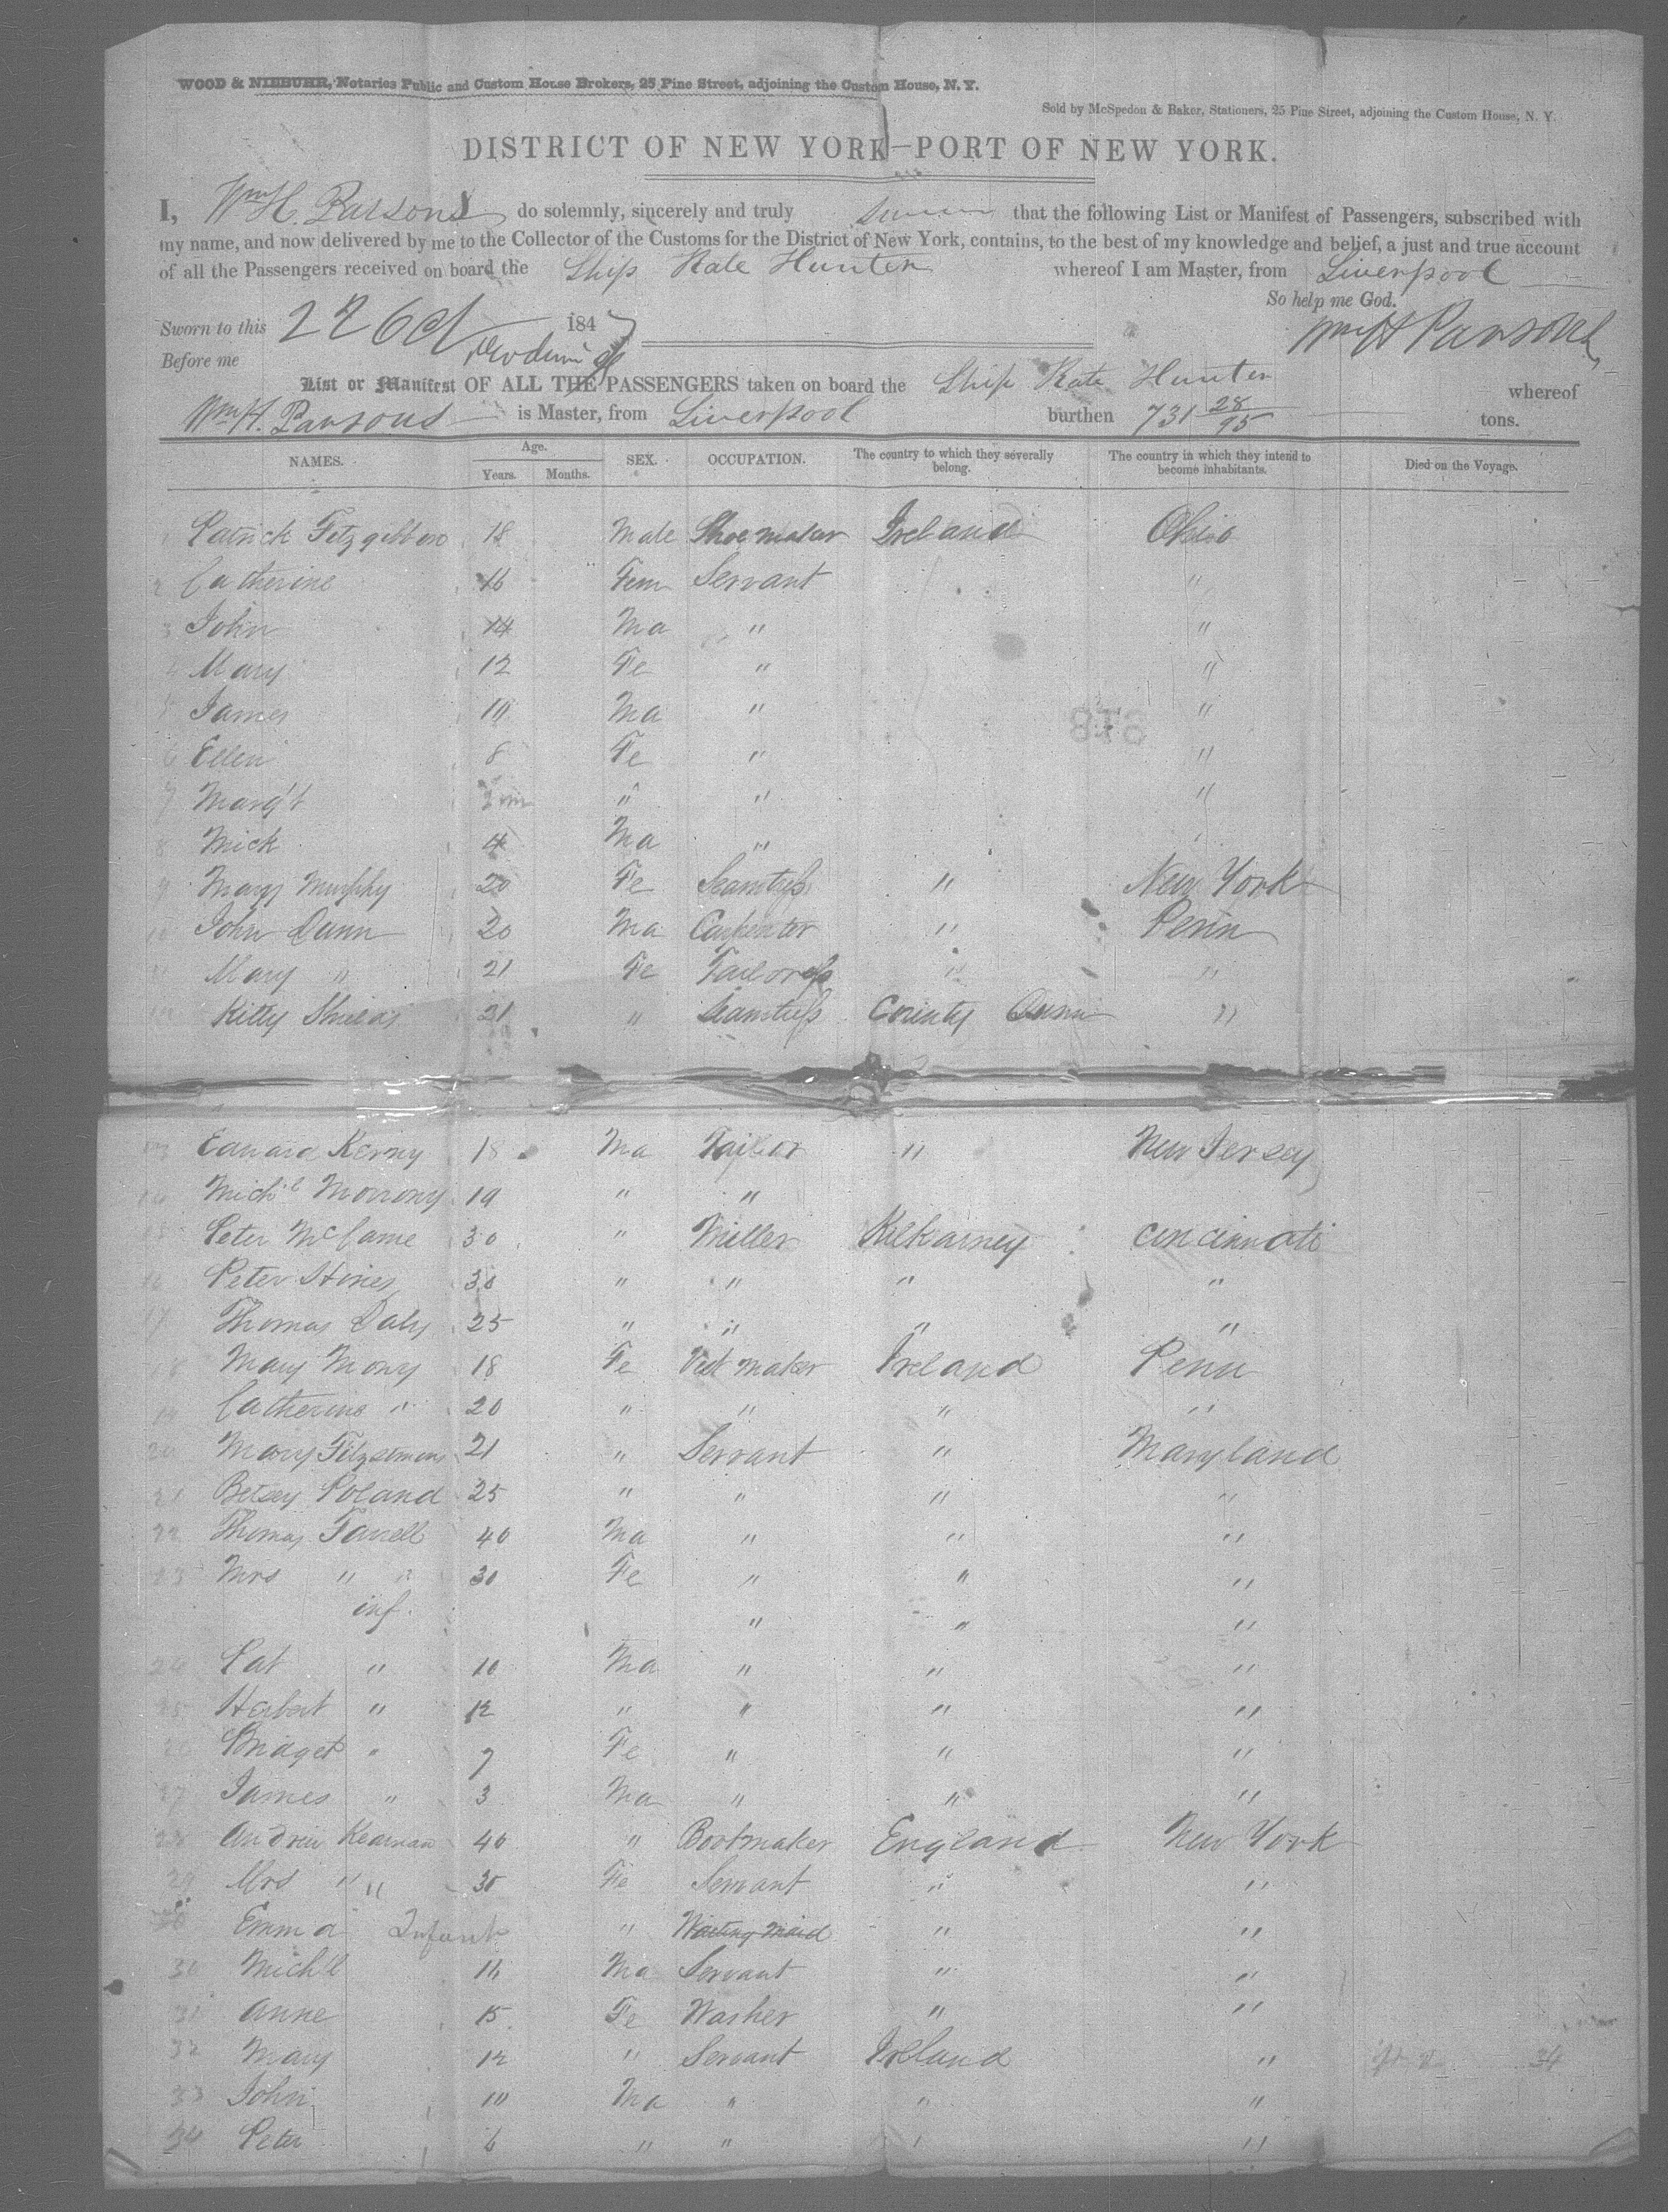 WOOD & NIEBUHR, Notaries Public and Custom House Brokers, 25 Pine Street, adjoining the Custom House, N. Y.
Sold by McSpedon & Baker, Stationers, 25 Pine Street, adjoining the Custom House, N. Y.
DISTRICT OF NEW YORK—PORT OF NEW YORK.
I, Wm H. Parsons do solemnly, sincerely and truly swear that the following List or Manifest of Passengers, subscribed with
my name, and now delivered by me to the Collector of the Customs for the District of New York, contains, to the best of my knowledge and belief, a just and true account
of all the Passengers received on board the Ship Kate Hunter whereof I am Master, from Liverpool
So help me God.
Sworn to this 22 Oct 1847 Wm H Parsons
Before me
List or Manifest OF ALL THE PASSENGERS taken on board the Ship Kate Hunter whereof
Wm H. Parsons is Master, from Liverpool burthen 731 28/95 tons.
NAMES. Age. Years. Months. SEX. OCCUPATION. The country to which they severally belong. The country in which they intend to become inhabitants. Died on the Voyage.
1 Patrick Fitzgibbon 18 Male Shoe maker Ireland Ohio
2 Catherine 16 Fem Servant "
3 John 14 Ma " "
4 Mary 12 Fe " "
5 James 10 Ma " "
6 Ellen 8 Fe " "
7 Marg't " " "
8 Mick 4 Ma "
9 Mary Murphy 20 Fe Seamstress " New York
10 John Dunn 20 Ma Carpenter " Penn
11 Mary " 21 Fe Tailoress " "
12 Kitty Shields 21 " Seamstress County "
13 Edward Kerny 18 Ma Tailor " New Jersey
14 Mich'l Morrony 19 " "
15 Peter McCame 30 " Miller Kilkarney Cincinnati
16 Peter Hines 30 " " " "
17 Thomas Daly 25 " " " "
18 Mary Mony 18 Fe Vest maker Ireland Penn
19 Catherine " 20 " " " "
20 Mary Fitzsemons 21 " Servant " Maryland
21 Betsey Poland 25 " " " "
22 Thomas Farrell 40 Ma " " "
23 Mrs " " 30 Fe " " "
inf. " " "
24 Pat " 10 Ma " " "
25 Herbert " 12 " " " "
26 Bridget " 7 Fe " " "
27 James " 3 Ma " " "
28 Andrew Kearnan 40 " Bootmaker England New York
29 Mrs " " 30 Fe Servant " "
Emma Infant " Waiting Maid " "
30 Mich'l Ma Servant " "
31 Anne 15 Fe Washer " "
32 Mary 12 " Servant Ireland " 34
33 John 10 Ma " " "
34 Peter 6 " " " "